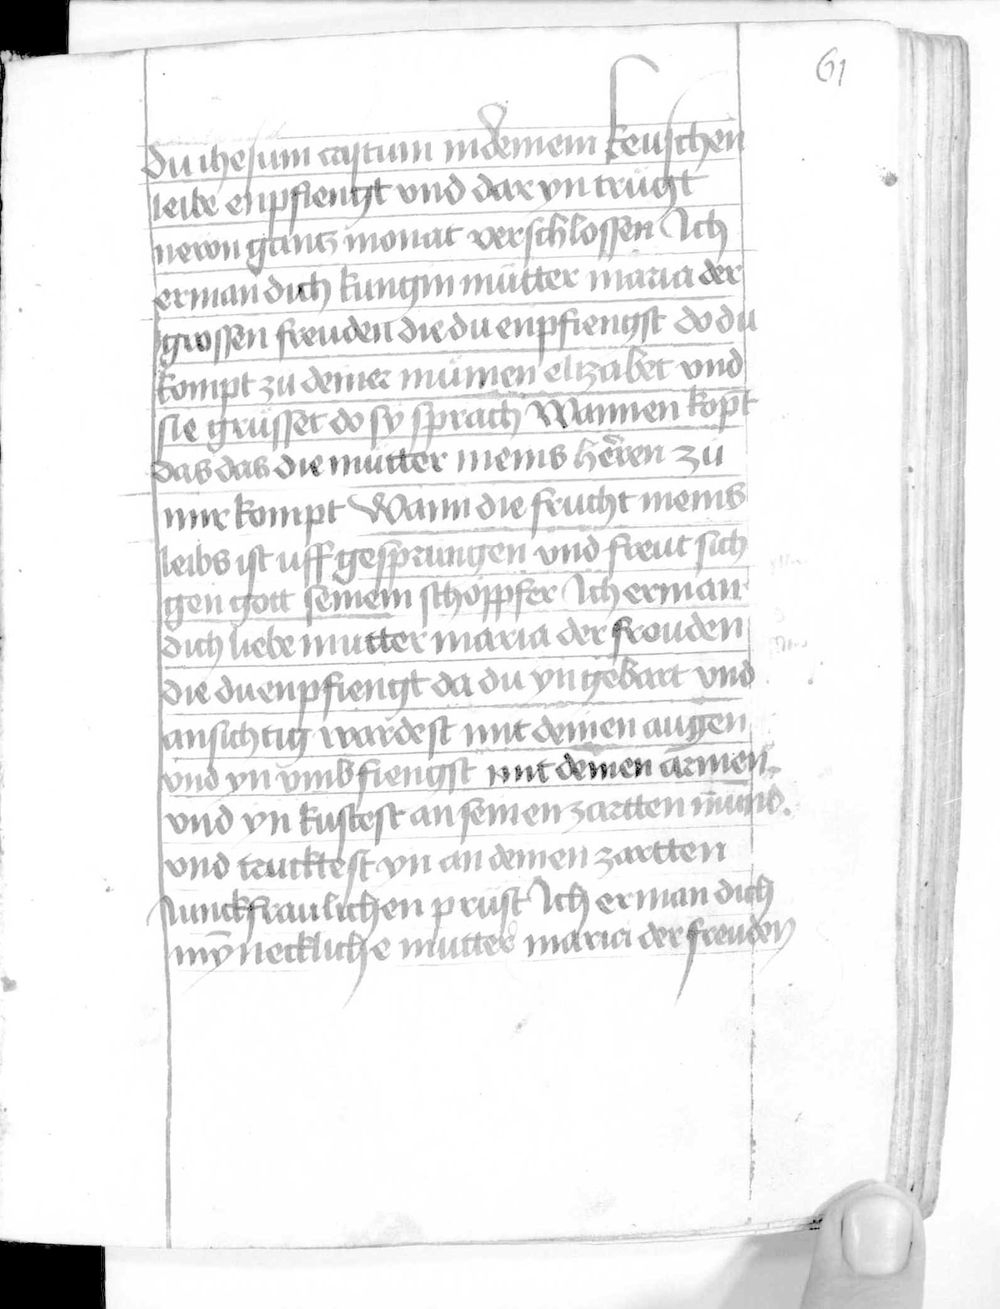 61
du ihesum cristum in deinem keuschen
leibe enpfiengt vnd dar yn trügt
newn gantz monat verschlossen Ich
erman dich kungin mütter maria der
grossen freuden die du enpfiengst do du
kompt zu deiner mümen elizabet vnd
sie grüsset do sy sprach Wannen kopt
das das die mütter meins herren zü
mir kompt Wann die frucht meins
leibs ist uff gesprungen vnd freut sich
gen gott seinem schöppfer Ich erman
dich liebe mutter maria der frouden
die du enpfiengt da du yn gebart vnd
ansichtig wardest mit deinen augen
vnd yn vmbfiengst mit deinen armen
vnd yn kustest an seinen zartten mund.
vnd trucktest yn an deinen zartten
Iunckfraulichen prüst Ich erman dich
myneckliche mutter maria der freuden